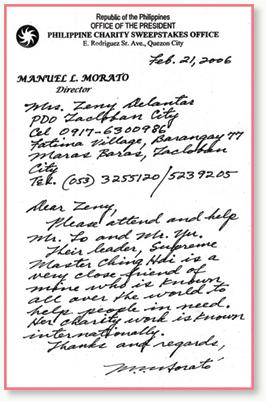 Republic of the Philippines
OFFICE OF THE PRESIDENT
PHILIPPINE CHARITY SWEEPSTAKES OFFICE
E. Rodriguez Sr. Ave., Quezon City
Feb. 21, 2006
MANUEL L. MORATO
Director
Mrs. Zeny Delantar
PDO Tacloban City
Cel 0917-6300986
Fatima Village, Barangay 77
Maras Baras, Tacloban
City
Tel. (053) 3255120/5239205
Dear Zeny,
Please attend and help
Mr. Lo and Mr. Yu.
Their leader, Supreme
Master Ching Hai is a
very close friend of
mine who is known
all over the world to
help people in need.
Her charity work is known
internationally.
Thanks and regards,
MLMorato